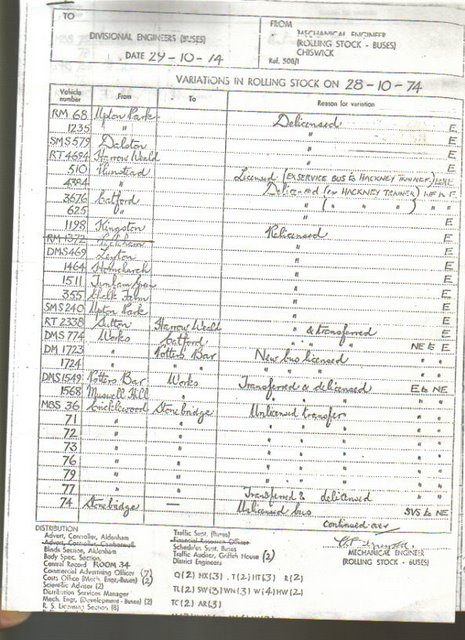 TO
DIVISIONAL ENGINEERS (BUSES)
DATE 29-10-74
FROM
MECHANICAL ENGINEER
(ROLLING STOCK - BUSES)
CHISWICK
Ref. 500/1
VARIATIONS IN ROLLING STOCK ON 28-10-74
Vehicle number From To Reason for variation
RM 68 Upton Park Delicensed E
1235 " " E
SMS 579 Dalston " E
RT 4694 Harrow Weald " E
510 Plumstead Licensed (EX SERVICE BUS to HACKNEY TRAINER)
4384 " Delicensed (ex HACKNEY TRAINER) NE to E
3676 Catford " ( " " ) " "
625 " " E
1198 Kingston Relicensed E
RM 1372 Peckham " E
DMS 469 Leyton " E
1464 Hornchurch " E
1511 Turnham Green " E
355 Chalk Farm " E
SMS 240 Upton Park " E
RT 2338 Sutton Harrow Weald " & transferred E
DMS 774 Works Catford " " NE to E
DM 1723 " Potters Bar New bus licensed " "
1724 " " " " " " "
DMS 1549 Potters Bar Works Transferred & delicensed E to NE
1568 Muswell Hill " " " " " "
MBS 36 Cricklewood Stonebridge Unlicensed transfer " "
71 " " " " " "
72 " " " " " "
73 " " " " " "
76 " " " " " "
79 " " " " " "
77 " " Transferred & delicensed " "
74 Stonebridge — Unlicensed bus SVS to NE
continued over
MECHANICAL ENGINEER
(ROLLING STOCK - BUSES)
DISTRIBUTION
Advert. Controller, Aldenham
Advert. Controller, Camberwell
Blinds Section, Aldenham
Body Spec. Section.
Central Record ROOM 34
Commercial Advertising Officer (7)
Costs Office (Mech. Engr.-Buses) (2)
Scientific Adviser (2)
Distribution Services Manager
Mech. Engr. (Development - Buses) (2)
R. S. Licensing Section (8)
Traffic Supt. (Buses)
Financial Research Officer
Schedules Supt. Buses
Traffic Auditor, Griffith House (2)
District Engineers
Q(2) HX(3) T(2) HT(3) R(2)
TL(2) SW(3) WN(3) W(4) HW(2)
TC(2) AR(3)